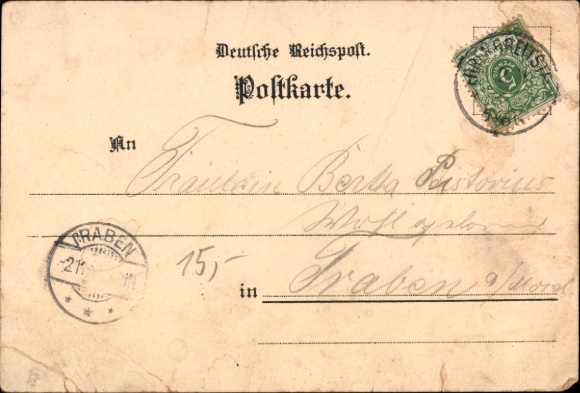 Deutsche Reichspost.
Postkarte.
An Fräulein Berta Pastorius
Wohlgebo
in Traben a/Mosel
15,-
TRABEN
5